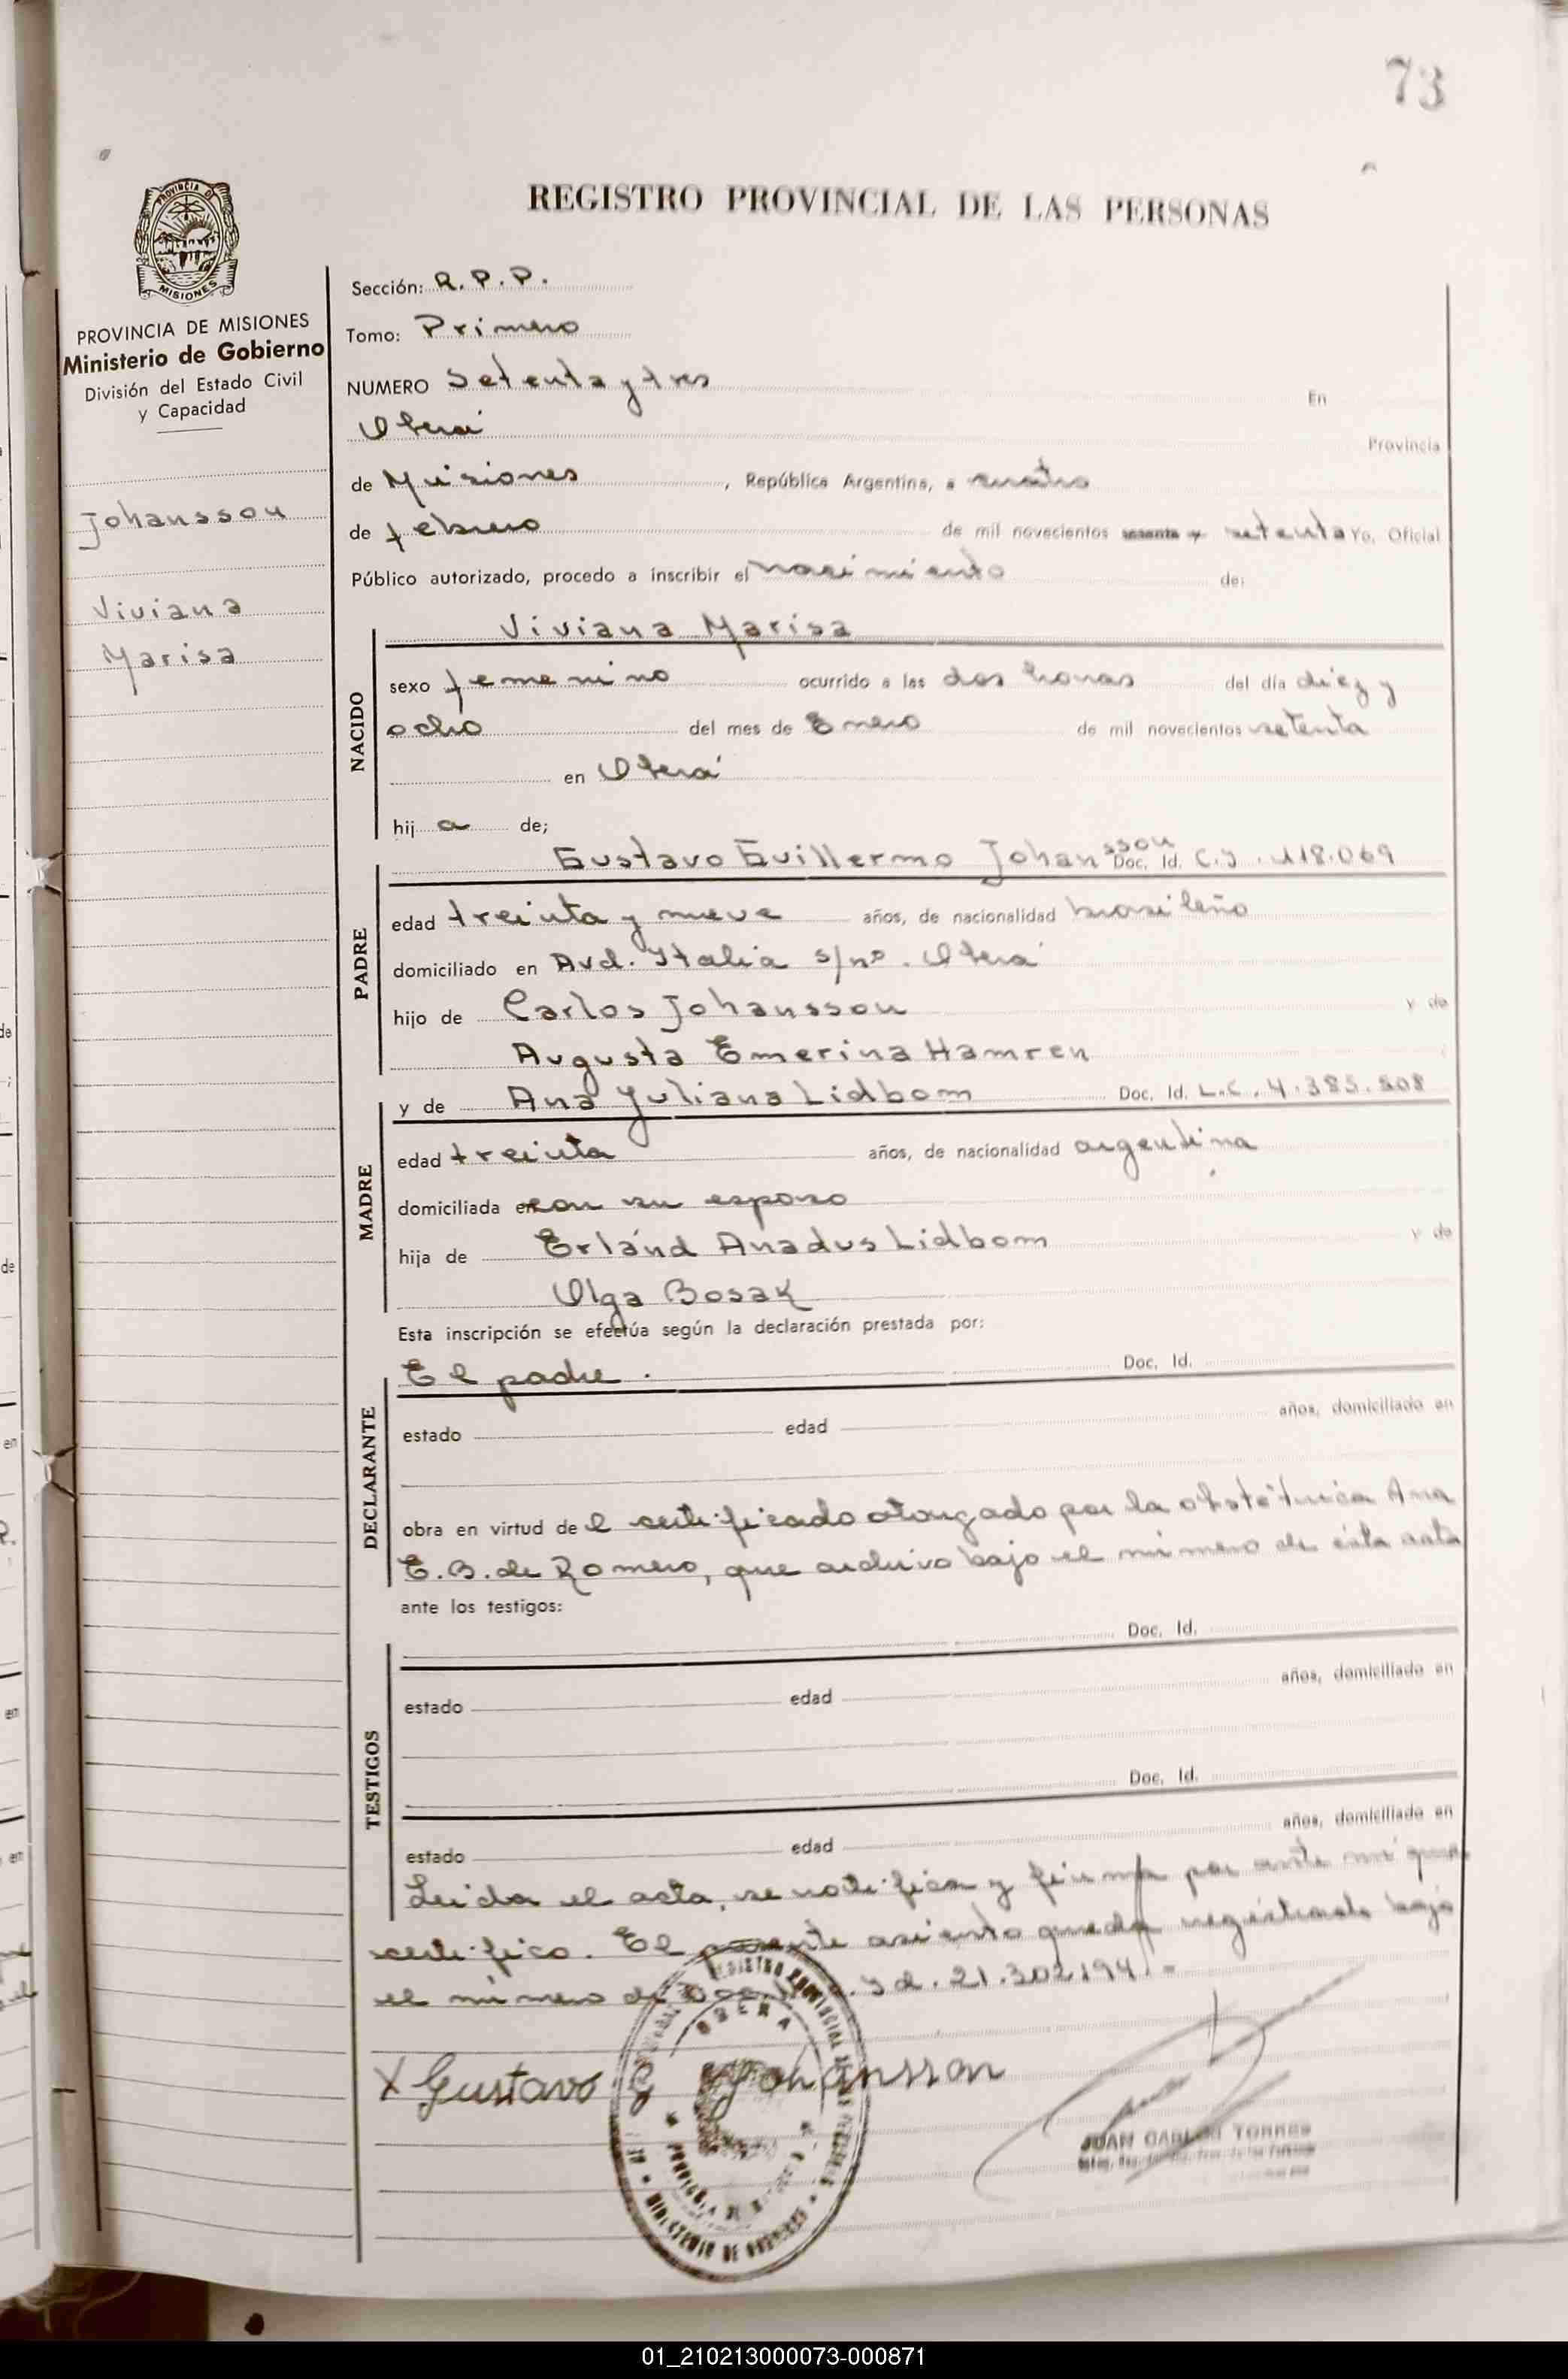 73
REGISTRO PROVINCIAL DE LAS PERSONAS
PROVINCIA DE
MISIONES
PROVINCIA DE MISIONES
Ministerio de Gobierno
División del Estado Civil
y Capacidad
Johansson
Viviana
Marisa
Sección: R. P. P.
Tomo: Primero
NUMERO Setenta y tres En
Oberá Provincia
de Misiones, República Argentina, a cuatro
de febrero de mil novecientos sesenta y setenta Yo, Oficial
Público autorizado, procedo a inscribir el nacimiento de:
NACIDO
Viviana Marisa
sexo femenino ocurrido a las dos horas del día diez y
ocho del mes de Enero de mil novecientos setenta
en Oberá
hij a de;
PADRE
Gustavo Guillermo Johansson Doc. Id. C.I. 118.069
edad treinta y nueve años, de nacionalidad brasileño
domiciliado en Avd. Italia s/nº. Oberá
hijo de Carlos Johansson y de
Augusta Emerina Hamren
MADRE
y de Ana Yuliana Lidbom Doc. Id. L.C. 4.385.508
edad treinta años, de nacionalidad argentina
domiciliada en con su esposo
hija de Erland Anadus Lidbom y de
Olga Bosak
Esta inscripción se efectúa según la declaración prestada por:
DECLARANTE
El padre. Doc. Id.
estado edad años, domiciliado en
obra en virtud de l certificado otorgado por la obstétrica Ana
E. B. de Romero, que archivo bajo el número de ésta acta
ante los testigos:
TESTIGOS
Doc. Id.
estado edad años, domiciliado en
Doc. Id.
estado edad años, domiciliado en
Leida el acta, se notifica y firma por ante mí que
certifico. El presente asiento queda registrado bajo
el número de Id. 21.302.194.-
X Gustavo G Johansson
REGISTRO PROVINCIAL DE LAS PERSONAS
OBERA
MINISTERIO DE GOBIERNO
JUAN CARLOS TORRES
01_210213000073-000871